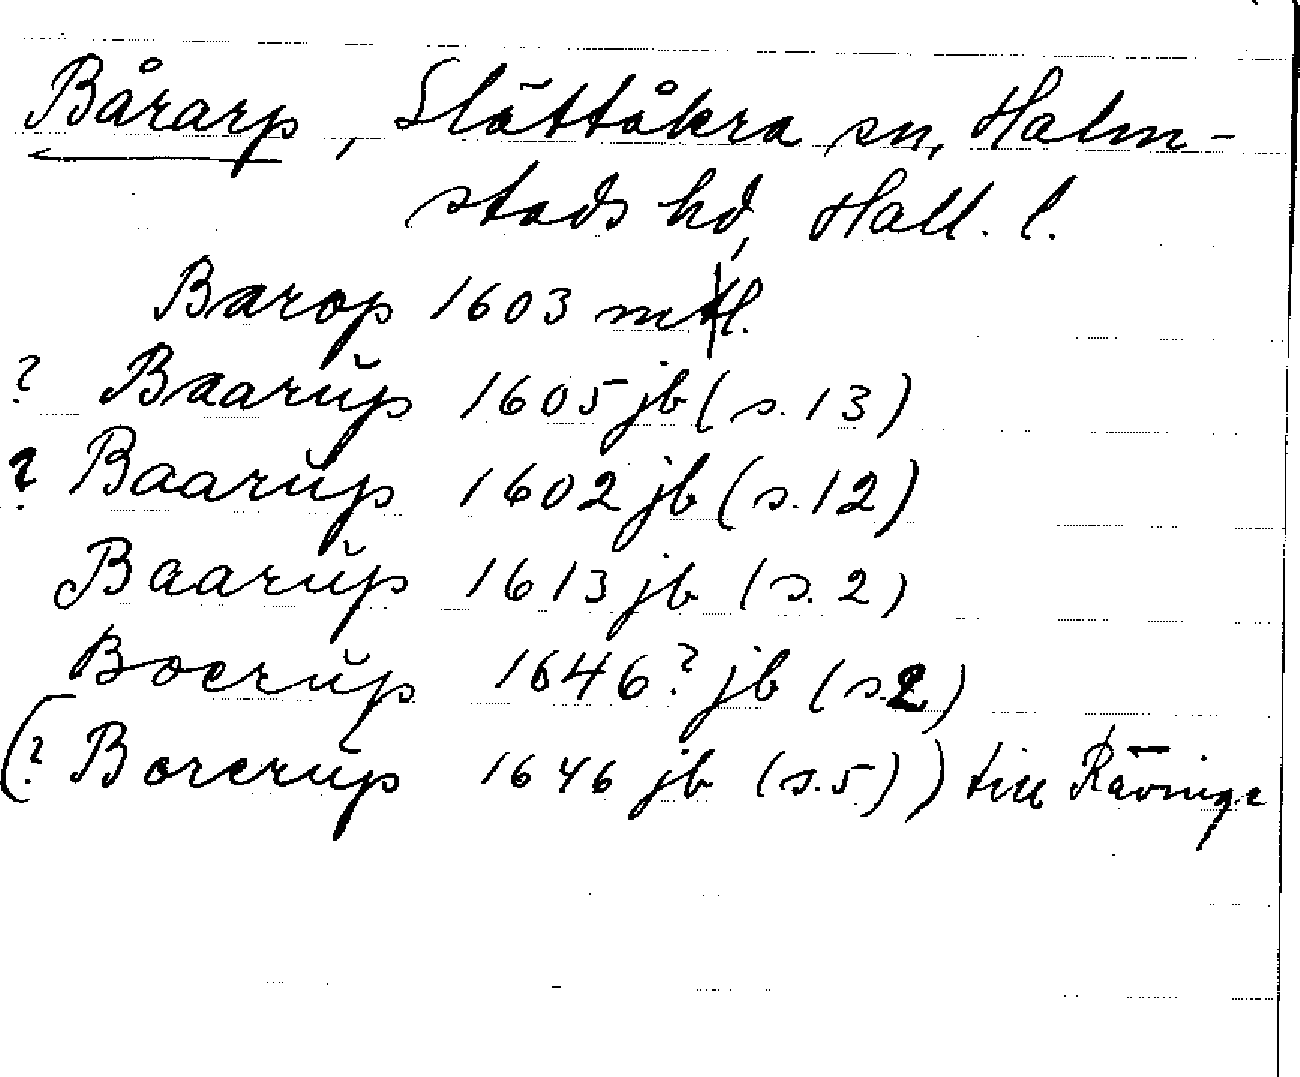 Bårarp, Slättåkra sn, Halm-
stads hd, Hall. l.
Barop 1603 mtl.
? Baarŭp 1605 jb (s. 13)
? Baarŭp 1602 jb (s. 12)
Baarŭp 1613 jb (s. 2)
Boerŭp 1646? jb (s. 2)
(? Borerŭp 1646 jb (s. 5)) till Rävinge